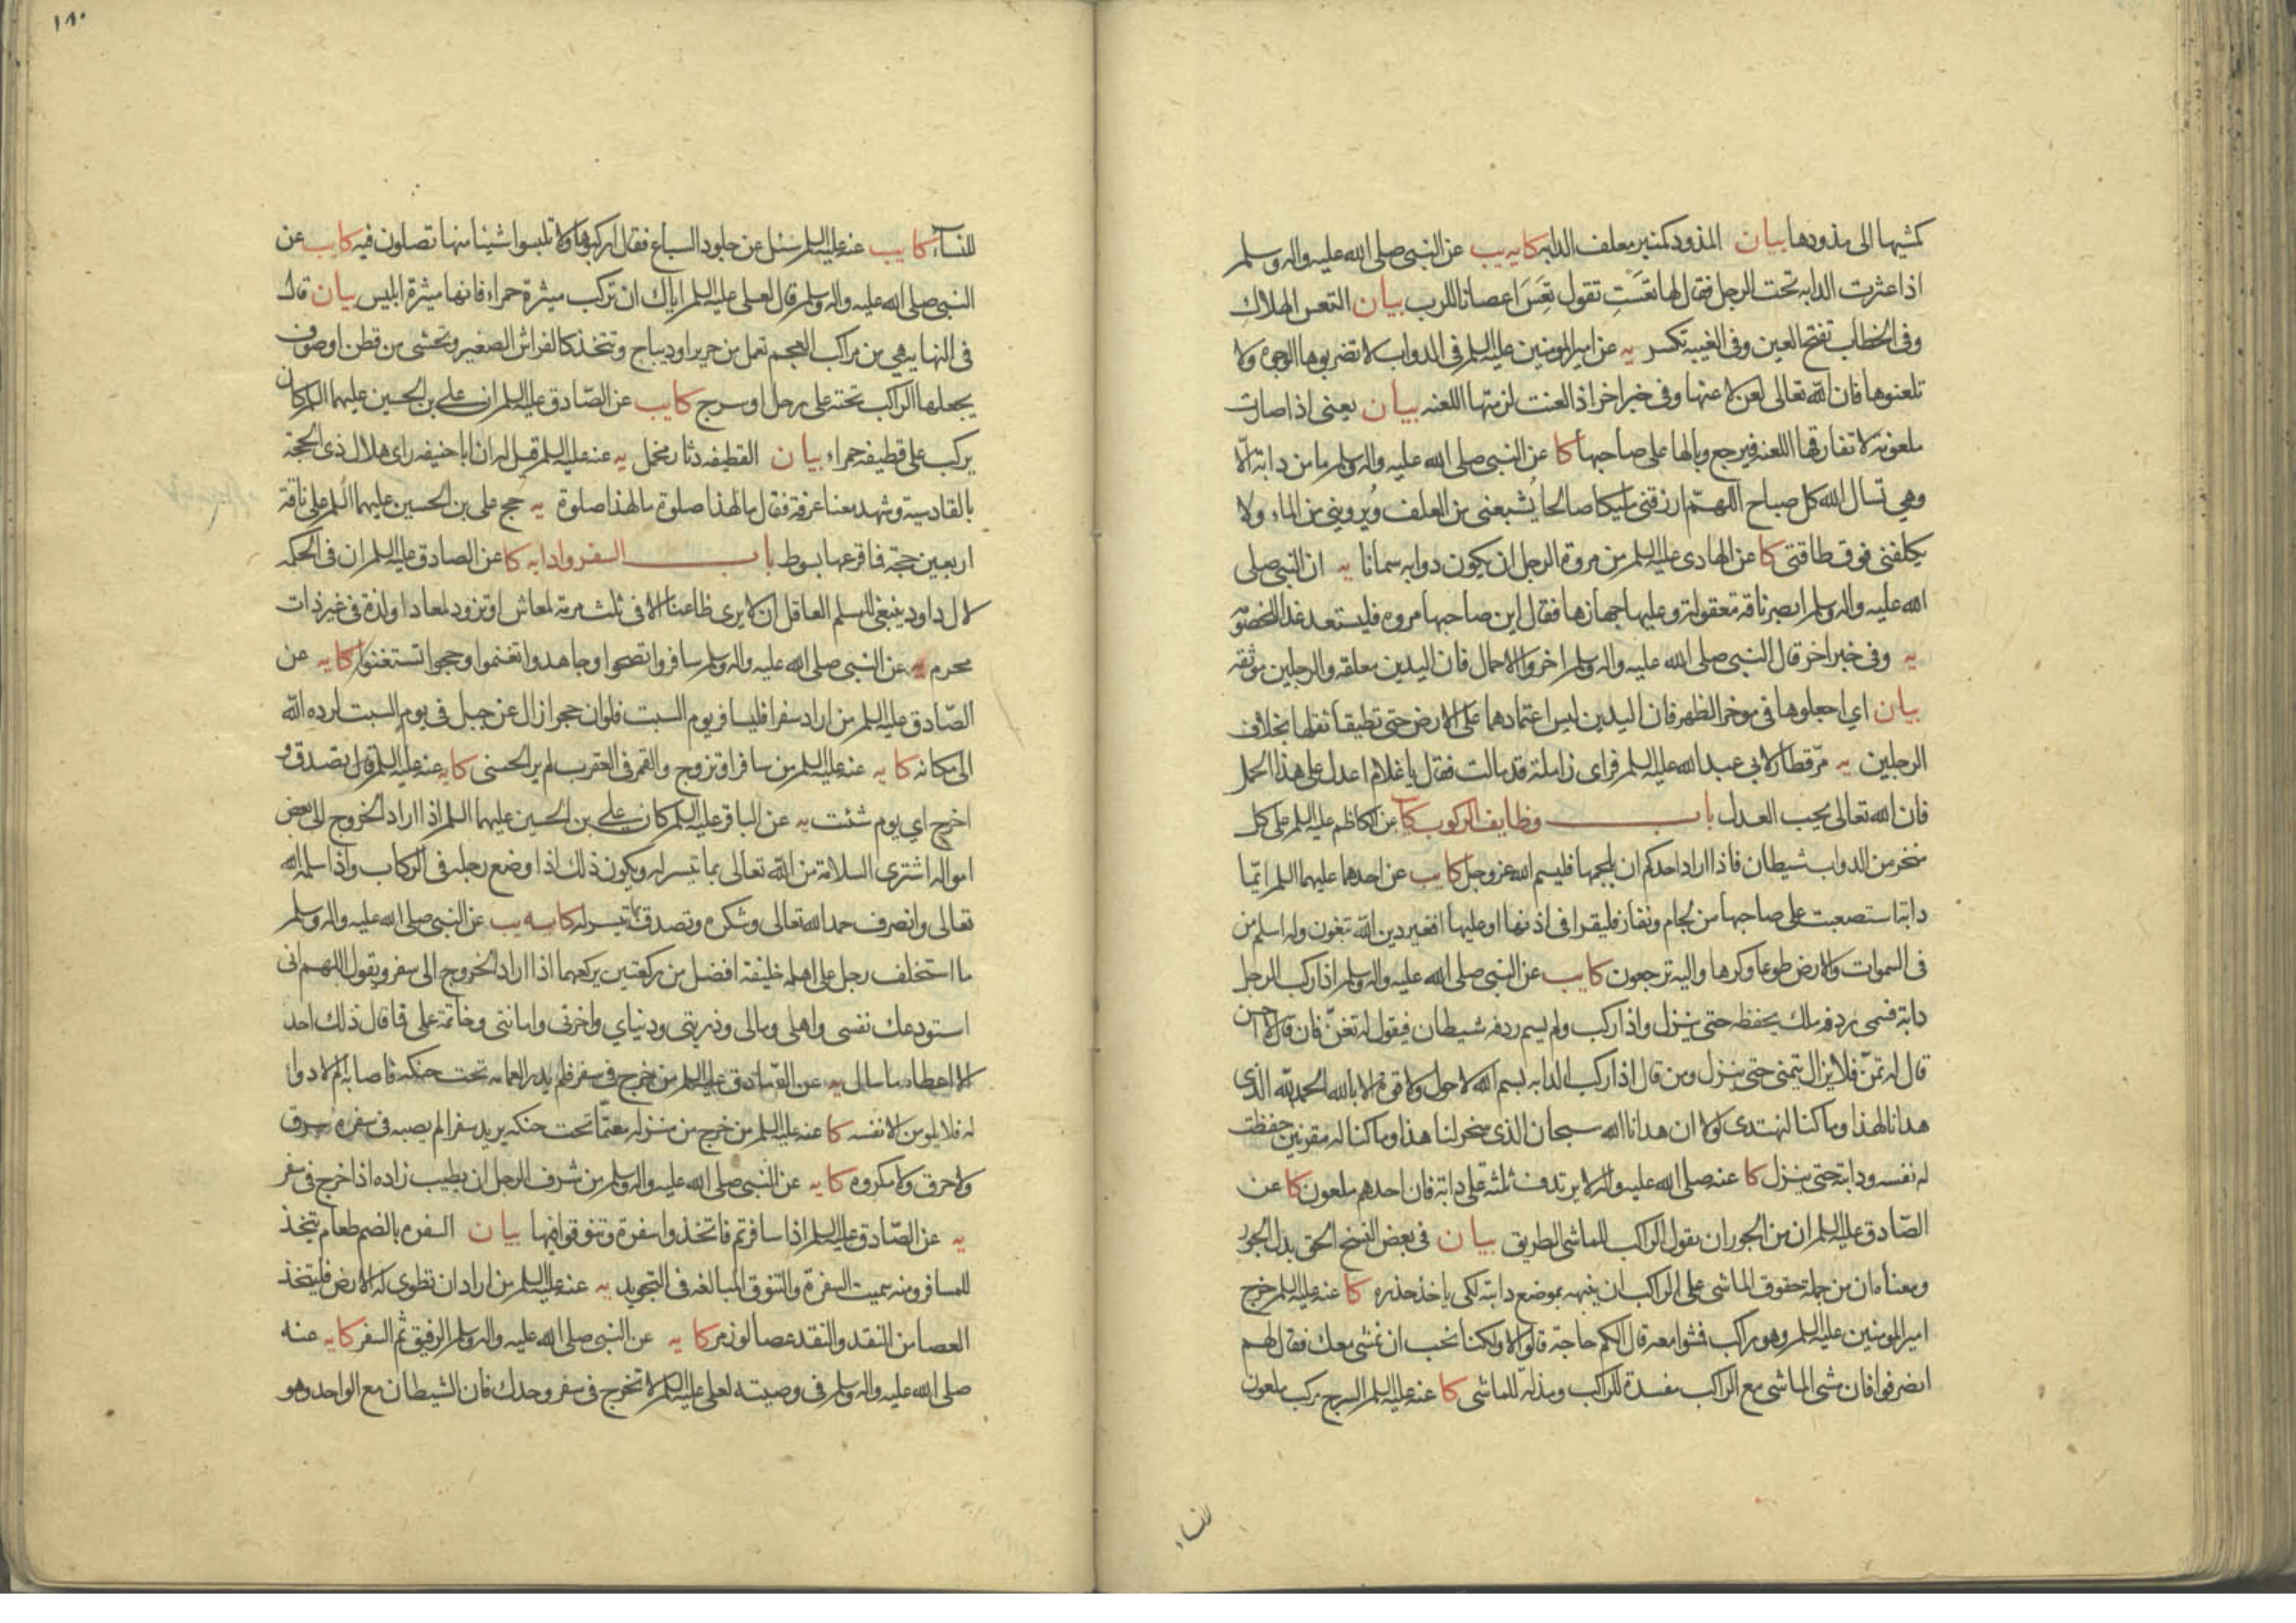 كمشيها الى مذودها بيان المذود كمنبر معلف الدابه كا يه يب عن النبي صلى الله عليه واله وسلم
اذا عثرت الدابه تحت الرجل فقال لها تعَستِ تقول تَعِسَ اعصانا للرب بيان التعس الهلاك
وفى الخطاب تفتح العين وفى الغيبة تكسر يه عن امير المومنين عليه السلم فى الدواب لا تضربوها الوجوه ولا
تلعنوها فان الله تعالى لعن لاعنها وفى خبر اخر اذا لعنت لزمتها اللعنه بيان يعنى اذا صارت
ملعونة لا تفارقها اللعنه فيرجع وبالها على صاحبها كا عن النبي صلى الله عليه واله وسلم ما من دابة الّا
وهي تسال الله كل صباح اللهمّ ارزقنى مليكا صالحا يُشبعنى من العلف ويُروينى من الماء ولا
يكلفنى فوق طاقتى كا عن الهادى عليه السلم من مروة الرجل ان يكون دوابه سمانا يه ان النبي صلى
الله عليه واله وسلم ابصر ناقة معقولة وعليها جهازها فقال اين صاحبها مروه فليستعد غدا للخصومة
يه وفى خبر اخر قال النبي صلى الله عليه واله وسلم اخروا الاحمال فان اليدين معلقه والرجلين موثقه
بيان اي اجعلوها فى موخر الظهر فان اليدين ليس اعتمادهما على الارض حتى تطيقا ثقلها بخلاف
الرجلين يه مرّ قطار لابي عبد الله عليه السلم فراى زاملة قد مالت فقال يا غلام اعدل على هذا الحمل
فان الله تعالى يحب العدل باب وظايف الركوب كا يب عن الكاظم عليه السلم على كل
منخر من الدواب شيطان فاذا اراد احدكم ان يلجمها فليسم الله عز وجل كا يب عن احدهما عليهما السلم ايّما
دابة استصعبت على صاحبها من لجام ونفار فليقرا فى اذنها او عليها افغير دين الله تبغون وله اسلم من
فى السموات والارض طوعا وكرها واليه ترجعون كا يب عن النبي صلى الله عليه واله وسلم اذا ركب الرجل
دابة فسمى ردفه ملك يحفظه حتى ينزل واذا ركب ولم يسم ردفه شيطان فيقول له تغنّ فان قال لا احسن
قال له تمنّ فلا يزال يتمنى حتى ينزل ومن قال اذا ركب الدابه بسم الله لا حول ولا قوة الا بالله الحمد لله الذى
هدانا لهذا وما كنا لنهتدى لولا ان هدانا الله سبحان الذى سخر لنا هذا وما كنا له مقرنين حفظت
له نفسه ودابته حتى ينزل كا عنه صلى الله عليه واله لا يرتدف ثلثة على دابة فان احدهم ملعون كا عن
الصّادق عليه السلم ان من الجور ان يقول الراكب للماشى الطريق بيان فى بعض النسخ الحق بدل الجور
ومعناه ان من جملة حقوق الماشى على الراكب ان ينبهه بموضع دابته لكى ياخذ حذره كا عنه عليه السلم خرج
امير المومنين عليه السلم وهو راكب فمشوا معه قال الكم حاجة قالوا لا ولكنا نحب ان نمشى معك فقال لهم
انصرفوا فان مشى الماشى مع الراكب مفسدة للراكب ومذلة للماشى كا عنه عليه السلم السرج مركب ملعون
للنساء
١٨٠
للنساء كا يب عنه عليه السلم سئل عن جلود السباع فقال اركبوها ولا تلبسوا شيئا منها تصلون فيه كا يب عن
النبي صلى الله عليه واله وسلم قال لعلى عليه السلم اياك ان تركب ميثرة حمراء فانها ميثرة ابليس بيان قال
فى النهايه هي من مراكب العجم تعمل من حرير او ديباج وتتخذ كالفراش الصغير وتحشى من قطن او صوف
يجعلها الراكب تحته على رحل او سرج كا يب عن الصّادق عليه السلم ان على بن الحسين عليهما السلم كان
يركب على قطيفه حمراء بيان القطيفه دثار مخمل يه عنه عليه السلم قيل له ان ابا حنيفه راى هلال ذى الحجة
بالقادسية وشهد معنا عرفة فقال ما لهذا صلوة ما لهذا صلوة يه حج على بن الحسين عليهما السلم على ناقة
اربعين حجة فما قرعها بسوط باب السفر وادابه كا عن الصادق عليه السلم ان فى الحكمه
لال داود ينبغى للمسلم العاقل ان لا يرى ظاعنا الا فى ثلث مرمة لمعاش او تزود لمعاد او لذة فى غير ذات
محرم يه عن النبي صلى الله عليه واله وسلم سافروا تصحوا وجاهدوا تغنموا وحجوا تستغنوا كا يه عن
الصّادق عليه السلم من اراد سفرا فليسافر يوم السبت فلو ان حجرا زال عن جبل فى يوم السبت لرده الله
الى مكانه كا يه عنه عليه السلم من سافر او تزوج والقمر فى العقرب لم ير الحسنى كا يه عنه عليه السلم قال تصدق و
اخرج اي يوم شئت يه عن الباقر عليه السلم كان على بن الحسين عليهما السلم اذا اراد الخروج الى بعض
امواله اشترى السلامة من الله تعالى بما تيسر له ويكون ذلك اذا وضع رجله فى الركاب واذا سلمه الله
تعالى وانصرف حمد الله تعالى وشكره وتصدق بما تيسر له كا يه يب عن النبي صلى الله عليه واله وسلم
ما استخلف رجل على اهله خليفة افضل من ركعتين يركعهما اذا اراد الخروج الى سفر ويقول اللهم انى
استودعك نفسى واهلى ومالى وذريتى ودنياي واخرتى وامانتى وخاتمة عملى فما قال ذلك احد
الا اعطاه ما سال يه عن الصّادق عليه السلم من خرج فى سفر فلم يدر العمامه تحت حنكه فاصابه الم لا دوا
له فلا يلومن الا نفسه كا عنه عليه السلم من خرج من منزله معتمّا تحت حنكه يريد سفرا لم يصبه فى سفره سرق
ولا حرق ولا مكروه كا يه عن النبي صلى الله عليه واله وسلم من شرف الرجل ان يطيب زاده اذا خرج فى سفر
يه عن الصّادق عليه السلم اذا سافرتم فاتخذوا سفرة وتنوقوا فيها بيان السفره بالضم طعام يتخذ
للمسافر ومنه سميت السفرة والتنوق المبالغه فى التجويد يه عنه عليه السلم من اراد ان تطوى له الارض فليتخذ
العصا من النقد والنقد عصا لوز مر كا يه عن النبي صلى الله عليه واله وسلم الرفيق ثم السفر كا يه عنه
صلى الله عليه واله وسلم فى وصيته لعلى عليه السلم لا تخرج فى سفر وحدك فان الشيطان مع الواحد وهو